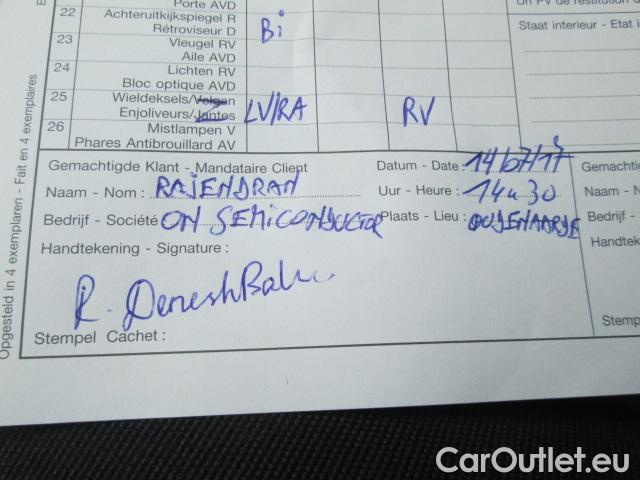 Porte AVD
22 Achteruitkijkspiegel R
Rétroviseur D Bi
23 Vleugel RV
Aile AVD
24 Lichten RV
Bloc optique AVD
25 Wieldeksels/Velgen
Enjoliveurs/Jantes LV/RA RV
26 Mistlampen V
Phares Antibrouillard AV
Staat interieur - Etat i
Opgesteld in 4 exemplaren - Fait en 4 exemplaires
Gemachtigde Klant - Mandataire Client
Datum - Date : 14/07/17
Naam - Nom : RAJENDRAN
Uur - Heure : 14u30
Bedrijf - Société ON SEMICONDUCTOR
Plaats - Lieu : OUDENAARDE
Handtekening - Signature :
R. DeneshBabu
Stempel Cachet :
Gemachtig
Naam - N
Bedrijf -
Handtek
Stemp
CarOutlet.eu